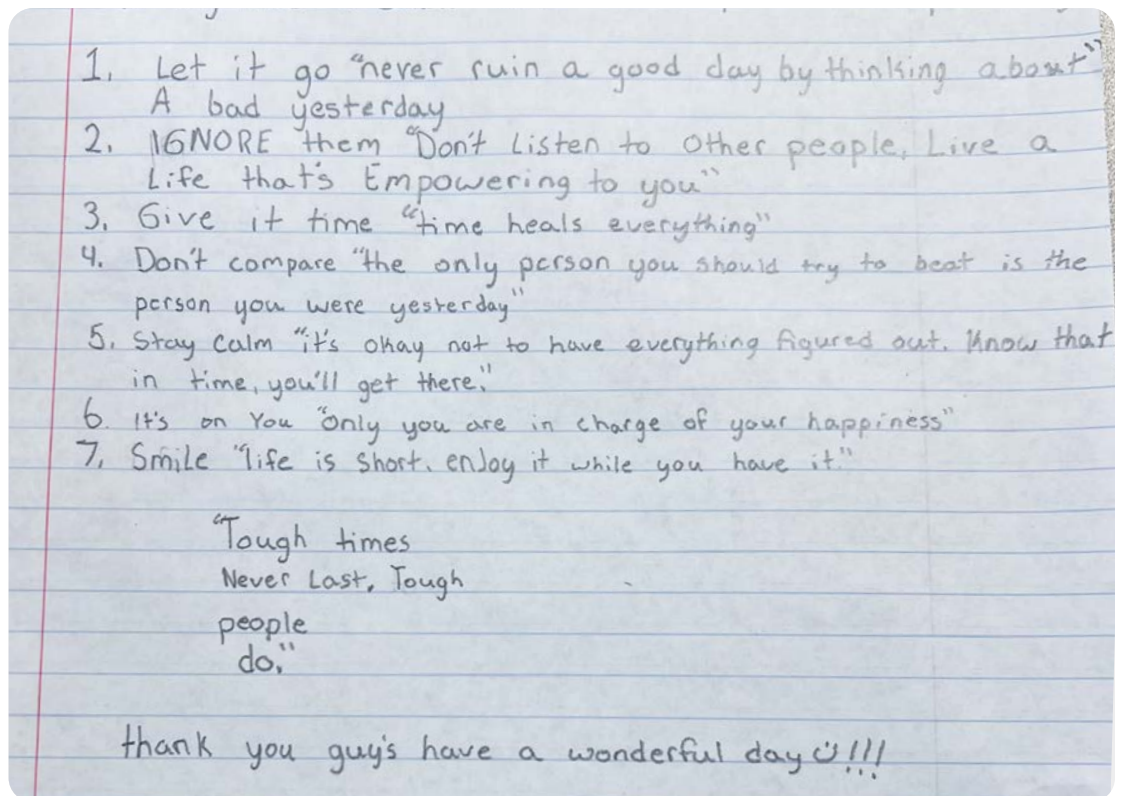 1. Let it go "never ruin a good day by thinking about"
A bad yesterday
2. IGNORE them "Don't Listen to Other people, Live a
Life that's Empowering to you"
3. Give it time "time heals everything"
4. Don't compare "the only person you should try to beat is the
person you were yesterday"
5. Stay Calm "it's okay not to have everything figured out. Know that
in time, you'll get there."
6. It's on You "Only you are in charge of your happiness"
7. Smile "life is short. enjoy it while you have it."
"Tough times
Never Last, Tough
people
do."
thank you guy's have a wonderful day☺!!!